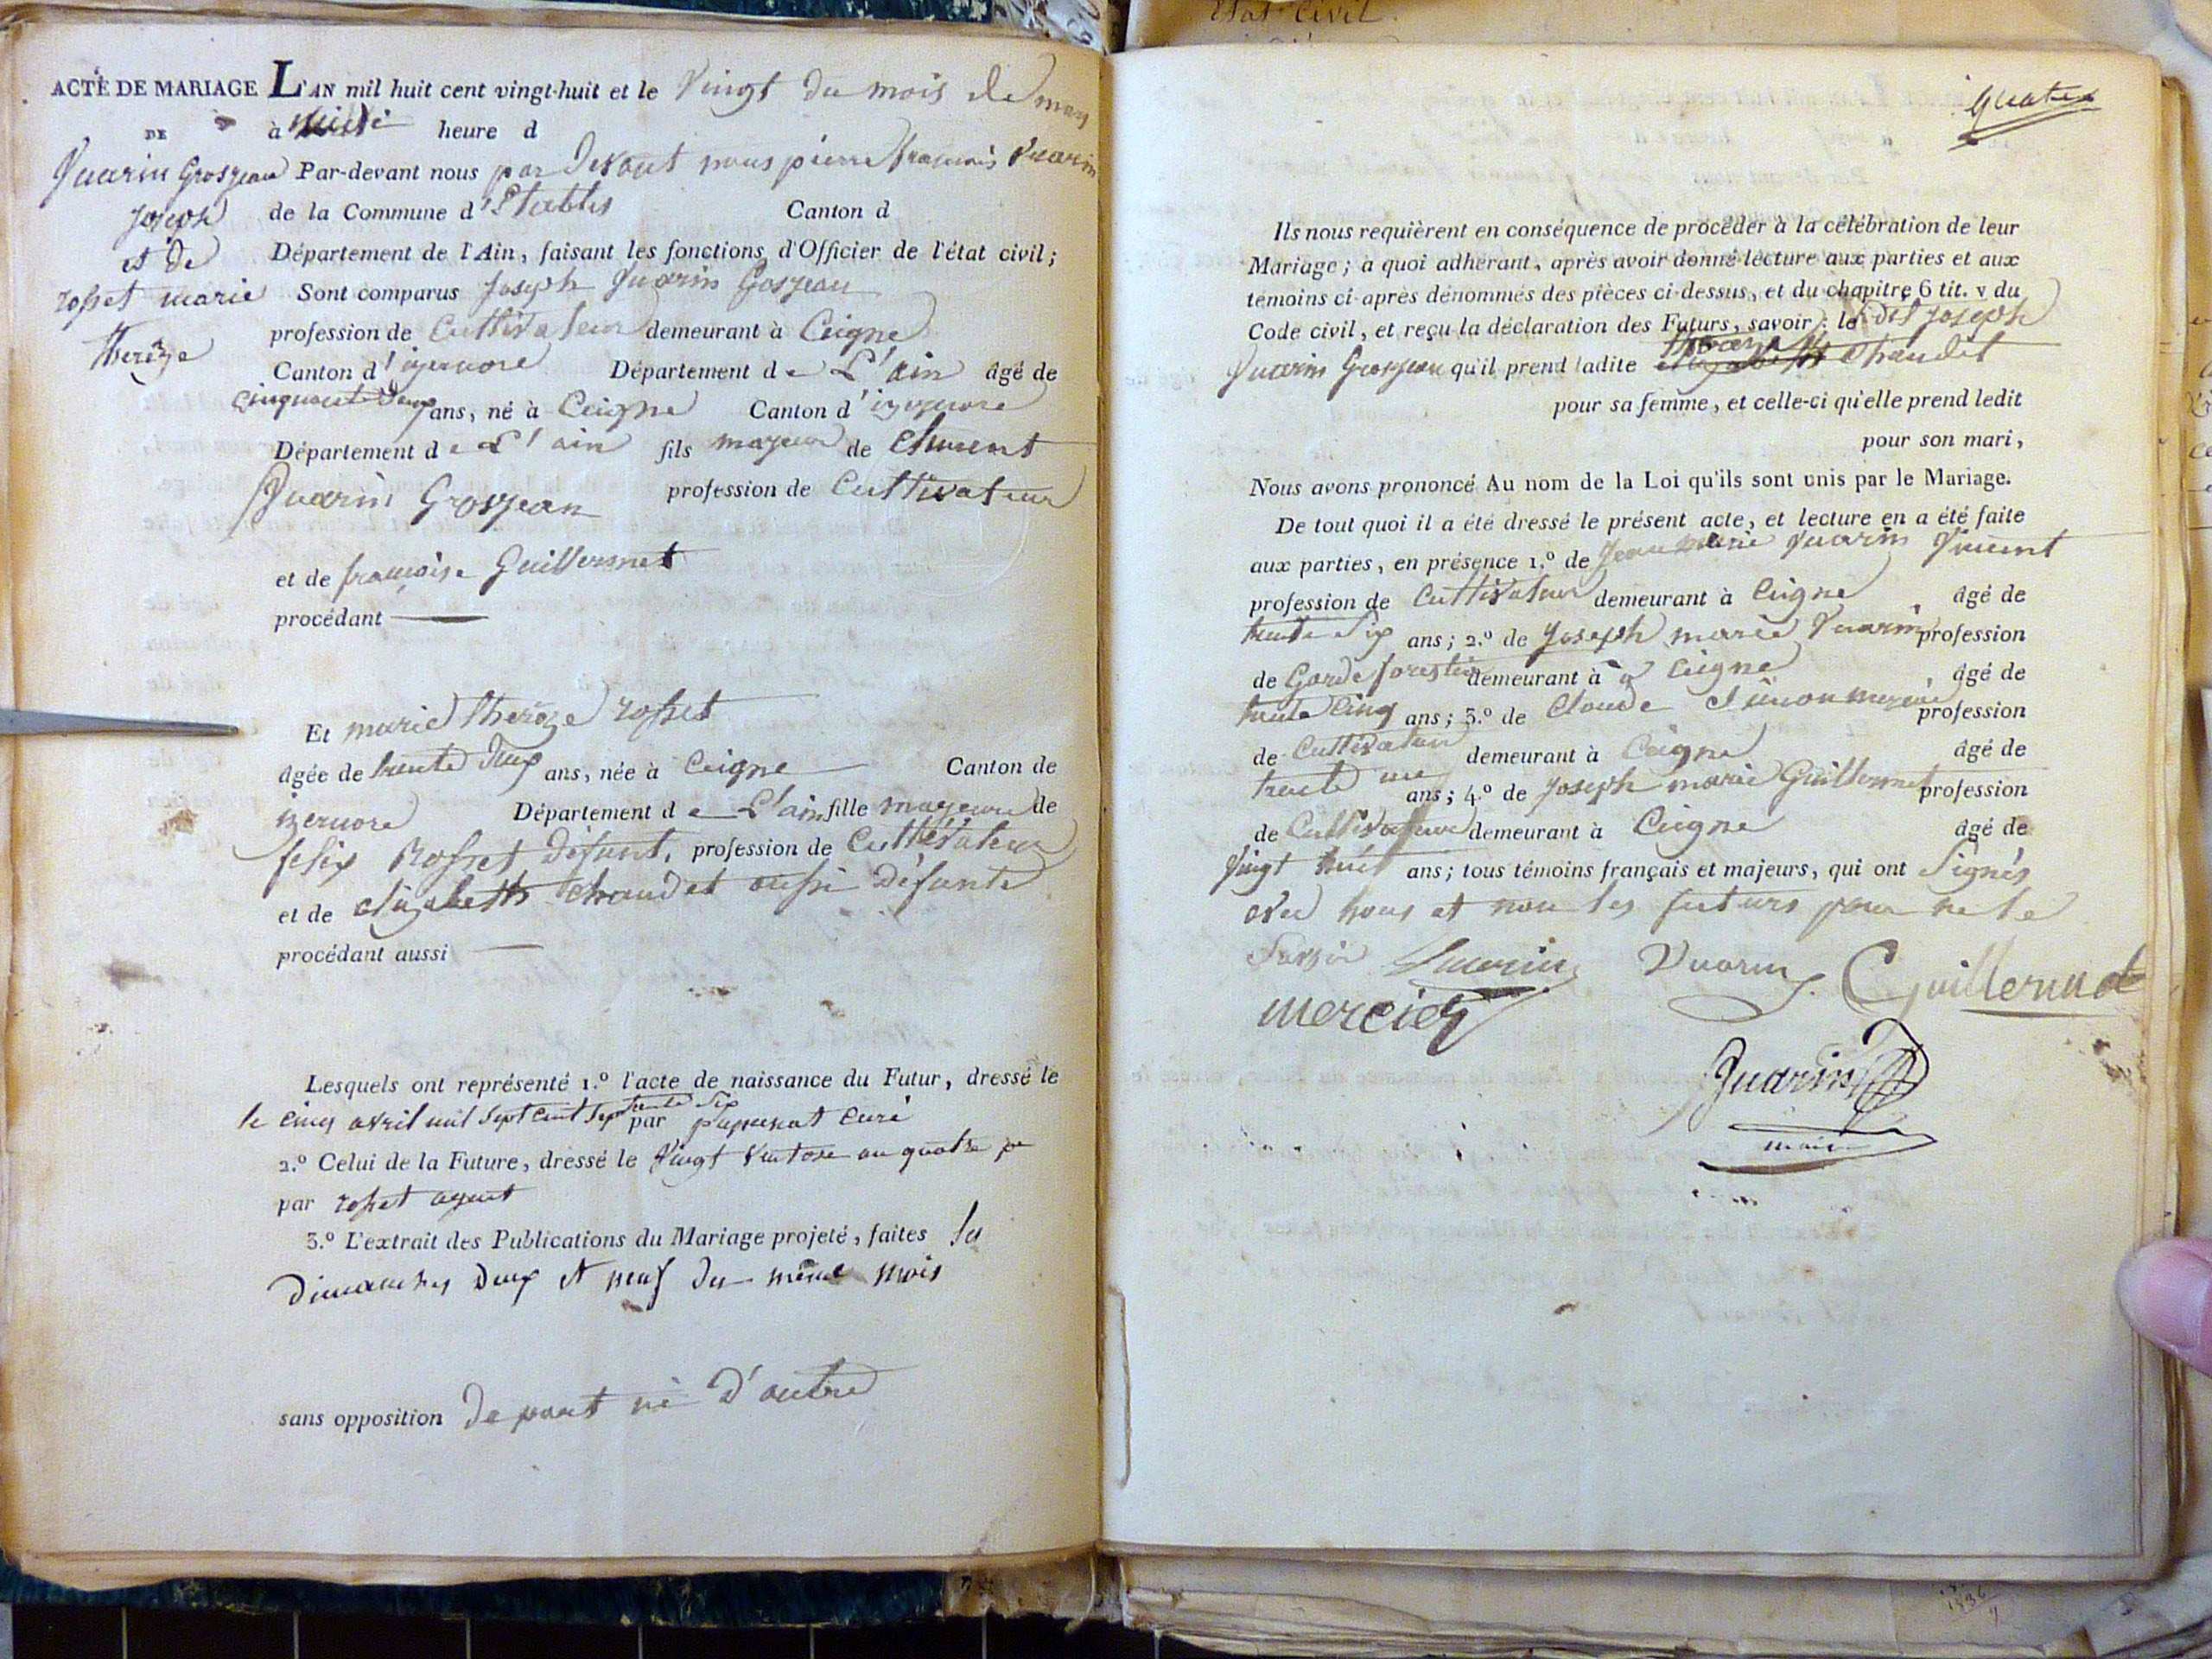 ACTE DE MARIAGE L'AN mil huit cent vingt-huit et le vingt du mois de mars
DE à midi heure d
Vuarin Grosjean Par-devant nous par devant nous pierre francois Vuarin
joseph de la Commune d'Etables Canton d
et de Département de l'Ain, faisant les fonctions d'Officier de l'état civil;
rosset marie Sont comparus Joseph Vuarin Grosjean
thereze profession de Cultivateur demeurant à Ceigne
Canton d'izernore Département de L'ain âgé de
cinquante deux ans, né à Ceigne Canton d'izernore
Département de L'ain fils majeur de Clement
Vuarin Grosjean profession de Cultivateur
et de françoise Guillermet
procédant
Et marie thereze rosset
âgée de trente deux ans, née à Ceigne Canton de
izernore Département de L'ain fille majeure de
felix Rosset défunt, profession de Cultivateur
et de elizabeth chaudet aussi défunte
procédant aussi
Lesquels ont représenté 1.º l'acte de naissance du Futur, dressé le
le cinq avril mil sept cent septante six par curé
2.º Celui de la Future, dressé le vingt ventose an quatre
par rosset agent
3.º L'extrait des Publications du Mariage projeté, faites les
Dimanches deux et neuf du même mois
sans opposition de part ni d'autre
état civil
quatre
Ils nous requièrent en conséquence de procéder à la célébration de leur
Mariage; à quoi adhérant, après avoir donné lecture aux parties et aux
témoins ci-après dénommés des pièces ci-dessus, et du chapitre 6 tit. v du
Code civil, et reçu la déclaration des Futurs, savoir: le dit Joseph
thereze
Vuarin Grosjean qu'il prend ladite elizabeth Chaudet
pour sa femme, et celle-ci qu'elle prend ledit
pour son mari,
Nous avons prononcé Au nom de la Loi qu'ils sont unis par le Mariage.
De tout quoi il a été dressé le présent acte, et lecture en a été faite
aux parties, en présence 1.º de Jean marie Vuarin Vincent
profession de Cultivateur demeurant à Ceigne âgé de
trente six ans; 2.º de Joseph marie Vuarin profession
de Garde forestier demeurant à a Ceigne âgé de
trente cinq ans; 3.º de Claude Simon mercier profession
de Cultivateur demeurant à Ceigne âgé de
trente un ans; 4.º de Joseph marie Guillermet profession
de Cultivateur demeurant à Ceigne âgé de
vingt huit ans; tous témoins français et majeurs, qui ont Signés
avec nous et non les futurs pour ne le
Savoir Vuarin Vuarin Guillermet
mercier
Vuarin
maire
1836